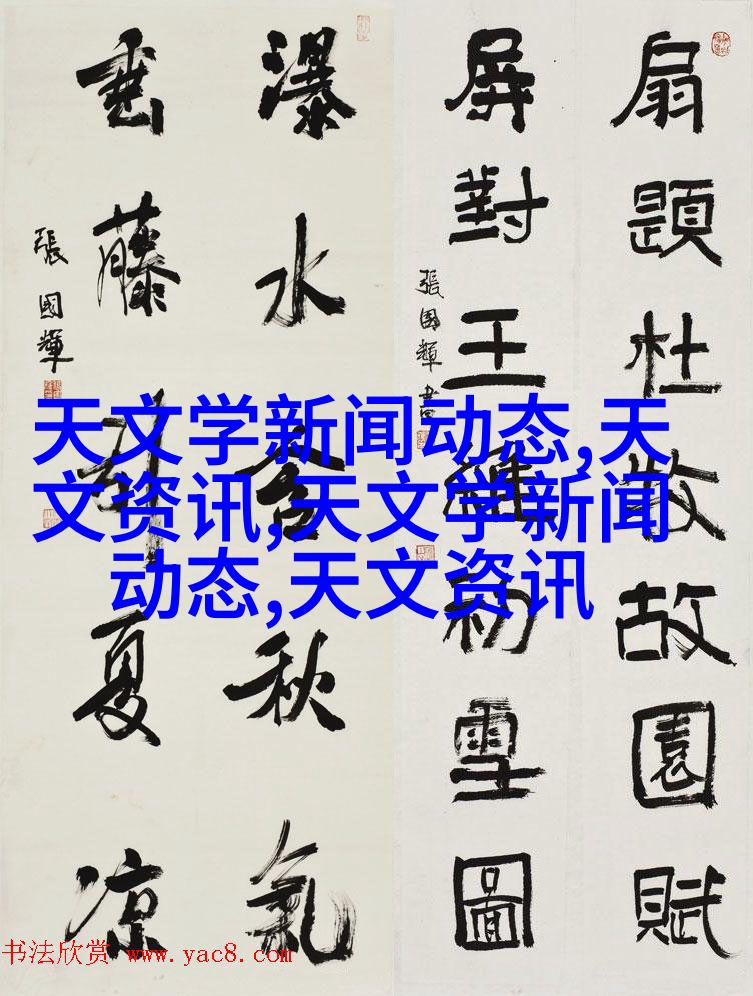 扇題杜牧故園賦
屏對王維初雪圖
張國輝書
瀑水含秋氣
垂藤引夏凉
張國輝
天文学新闻动态,天
文资讯,天文学新闻
动态,天文资讯
书法欣赏 www.yac8.com